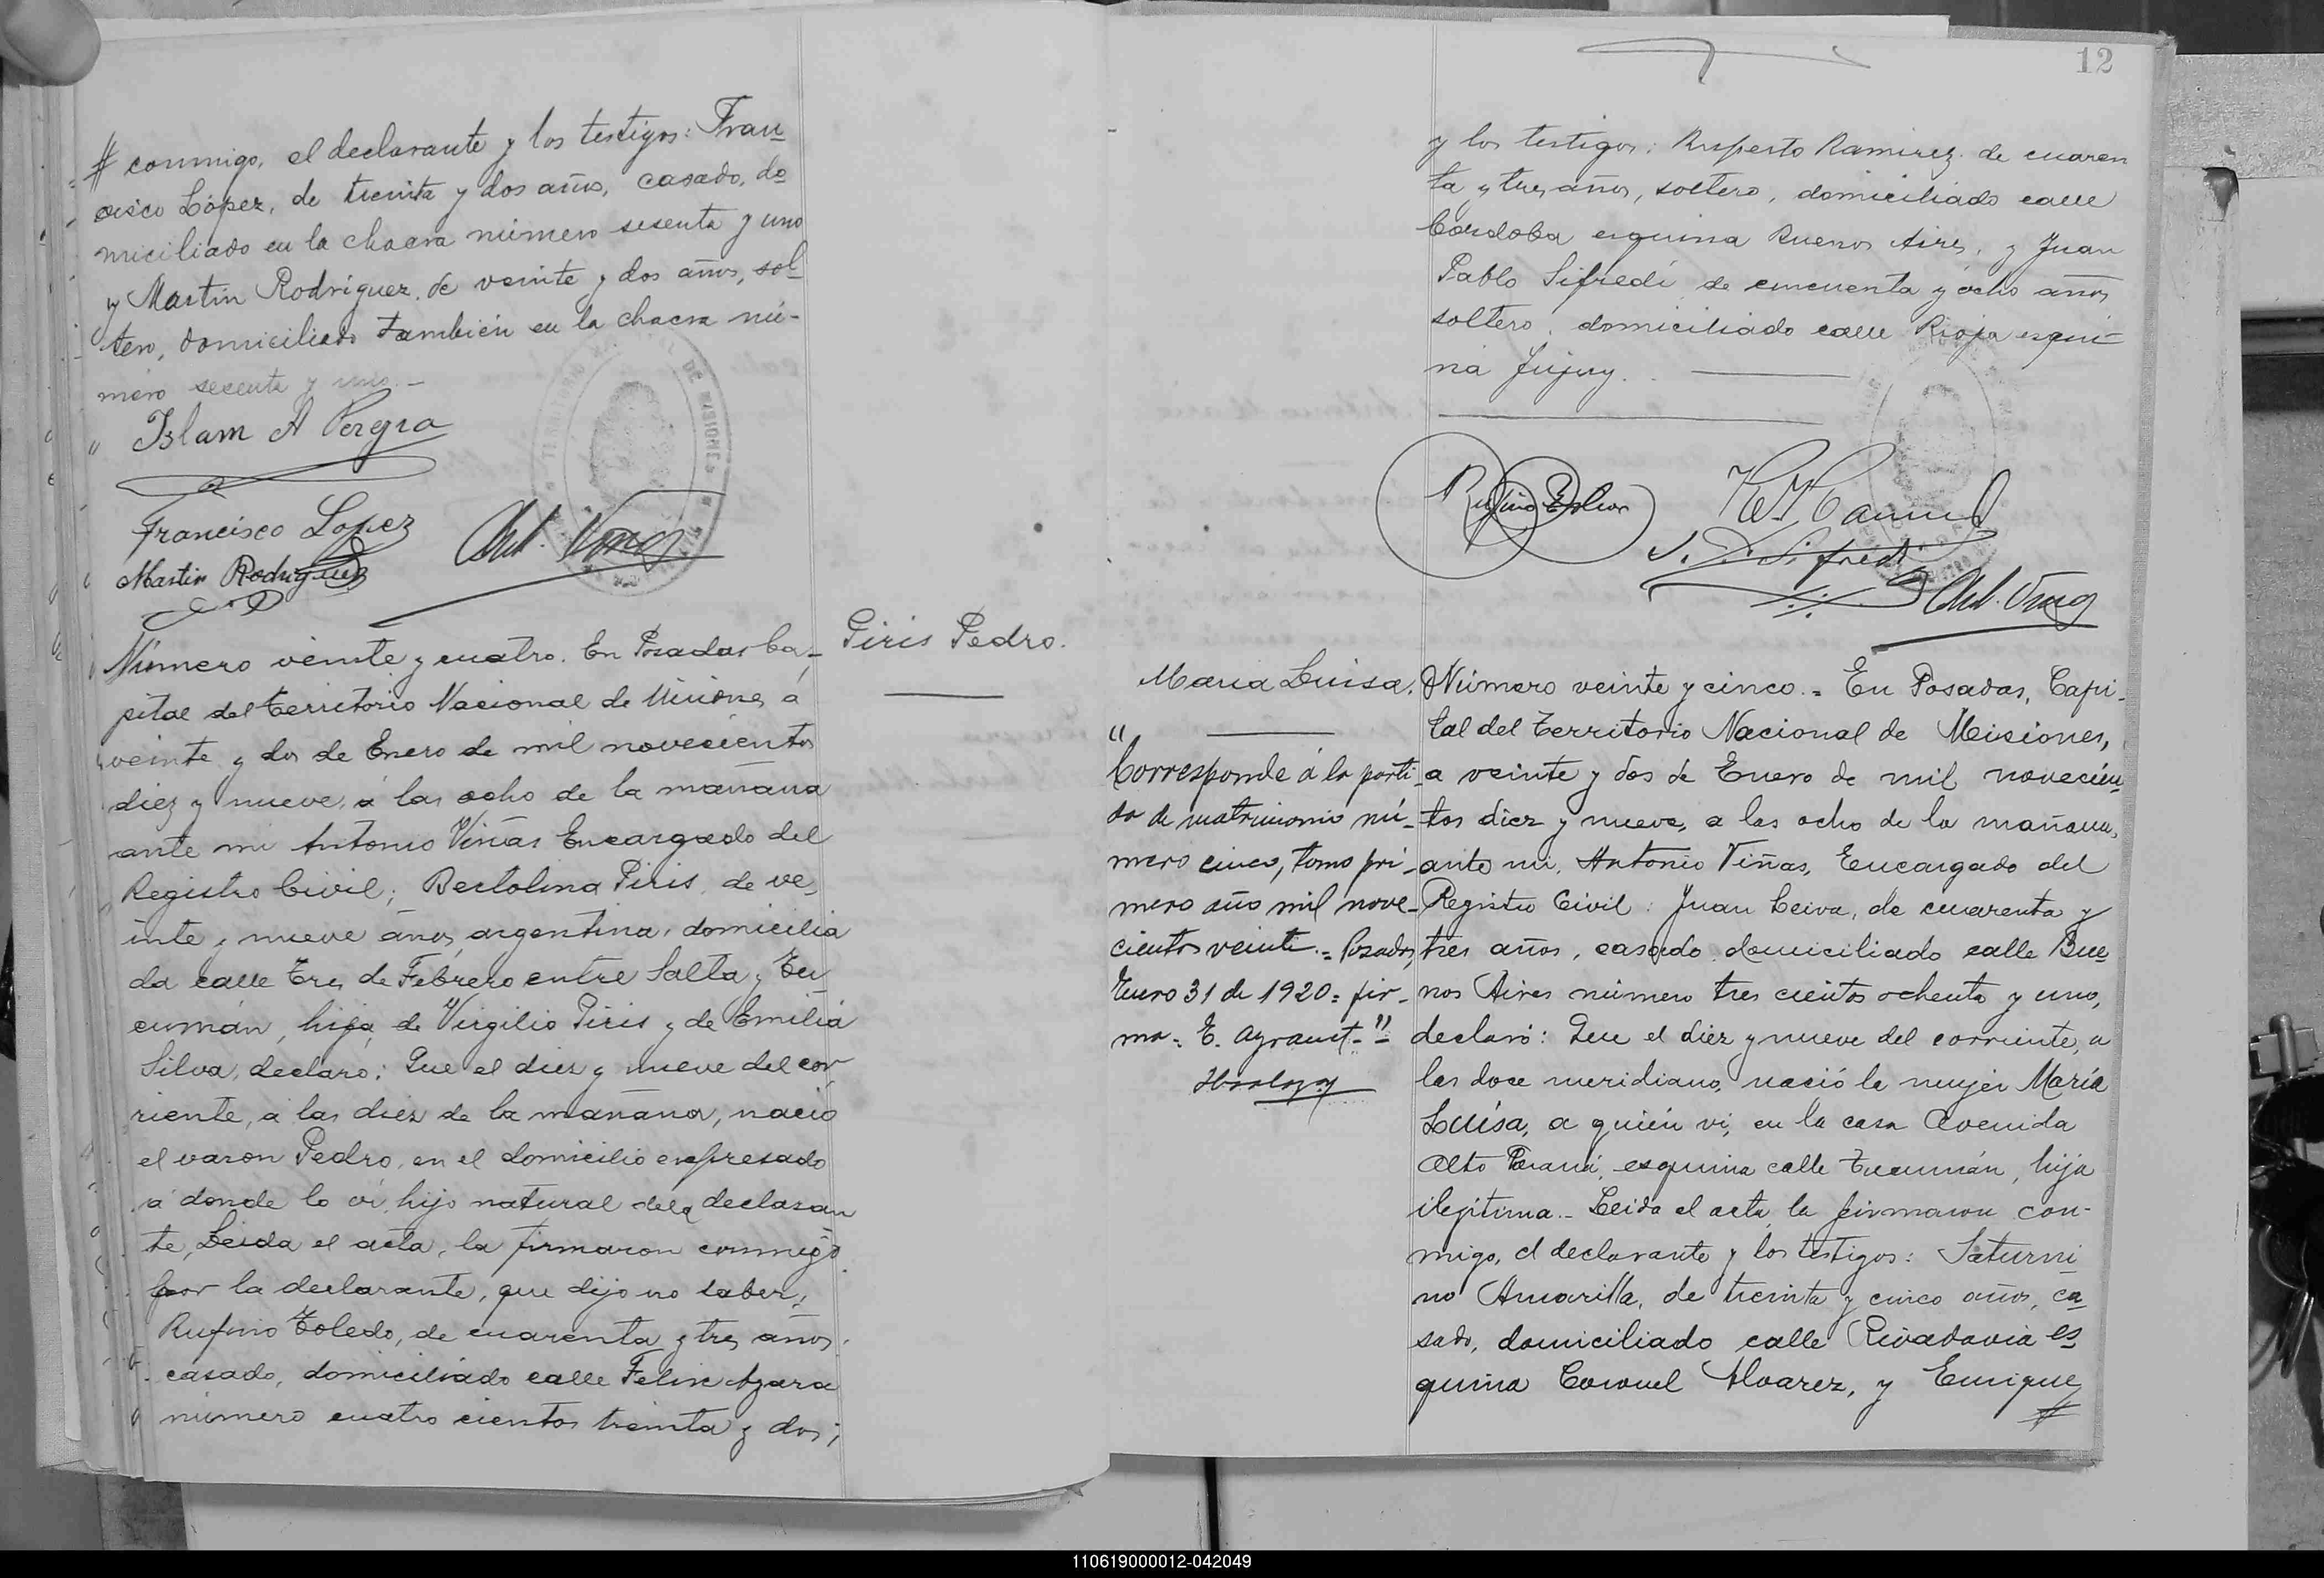 # conmigo, el declarante y los testigos: Fran-
cisco López, de treinta y dos años, casado, do-
miciliado en la chacra número sesenta y uno
y Martín Rodríguez, de veinte y dos años, sol-
tero, domiciliado también en la chacra nú-
mero secenta y uno.—
Islam A Pereyra
Francisco Lopez
Martin Rodriguez
Ant. Viñas
Número veinte y cuatro. En Posadas Ca-
pital del territorio Nacional de Misiones, á
veinte y dos de Enero de mil novecientos
diez y nueve, á las ocho de la mañana
ante mi Antonio Viñas Encargado del
Registro Civil; Bertolina Piris, de ve-
inte y nueve años, argentina, domicilia
da calle Tres de Febrero entre Salta y Tu-
cumán, hija, de Virgilio Piris y de Emilia
Silva, declaró: Que el diez y nueve del cor
riente, á las diez de la mañana, nació
el varon Pedro, en el domicilio expresado
á donde lo ví, hijo natural dela declaran
te, Leida el acta, la firmaron conmigo
por la declarante, que dijo no saber,
Rufino Toledo, de cuarenta y tres años,
casado, domiciliado calle Felix Azara
número cuatro cientos treinta y dos;
Piris Pedro.
12
y los testigos: Ruperto Ramirez de cuaren
ta y tres años, soltero, domiciliado calle
Córdoba esquina Buenos Aires, y Juan
Pablo Sifredi de cincuenta y ocho años,
soltero, domiciliado calle Rioja esqui-
na Jujuy.
Rufino
J. P. Sifredi
Ant. Viñas
Maria Luisa.
"Corresponde á la parti-
da de matrimonio nú-
mero cinco, tomo pri-
mero año mil nove-
cientos veinte.= Posadas,
Enero 31 de 1920= fir-
ma= E.
Número veinte y cinco.= En Posadas, Capi-
tal del Territorio Nacional de Misiones,
a veinte y dos de Enero de mil novecien-
tos diez y nueve, a las ocho de la mañana,
ante mi, Antonio Viñas, Encargado del
Registro Civil: Juan Leiva, de cuarenta y
tres años, casado domiciliado calle Bue-
nos Aires número tres cientos ochenta y uno,
declaró: Que el diez y nueve del corriente, a
las doce meridiano, nació la mujer María
Luisa, a quién vi, en la casa Avenida
Alto Paraná, esquina calle Tucumán, hija
ilegitima.- Leida el acta, la firmaron con-
migo, el declarante y los testigos: Saturni
no Amarilla, de treinta y cinco años, ca
sado, domiciliado calle Rivadavia es-
quina Coronel Alvarez, y Enrique
#
110619000012-042049